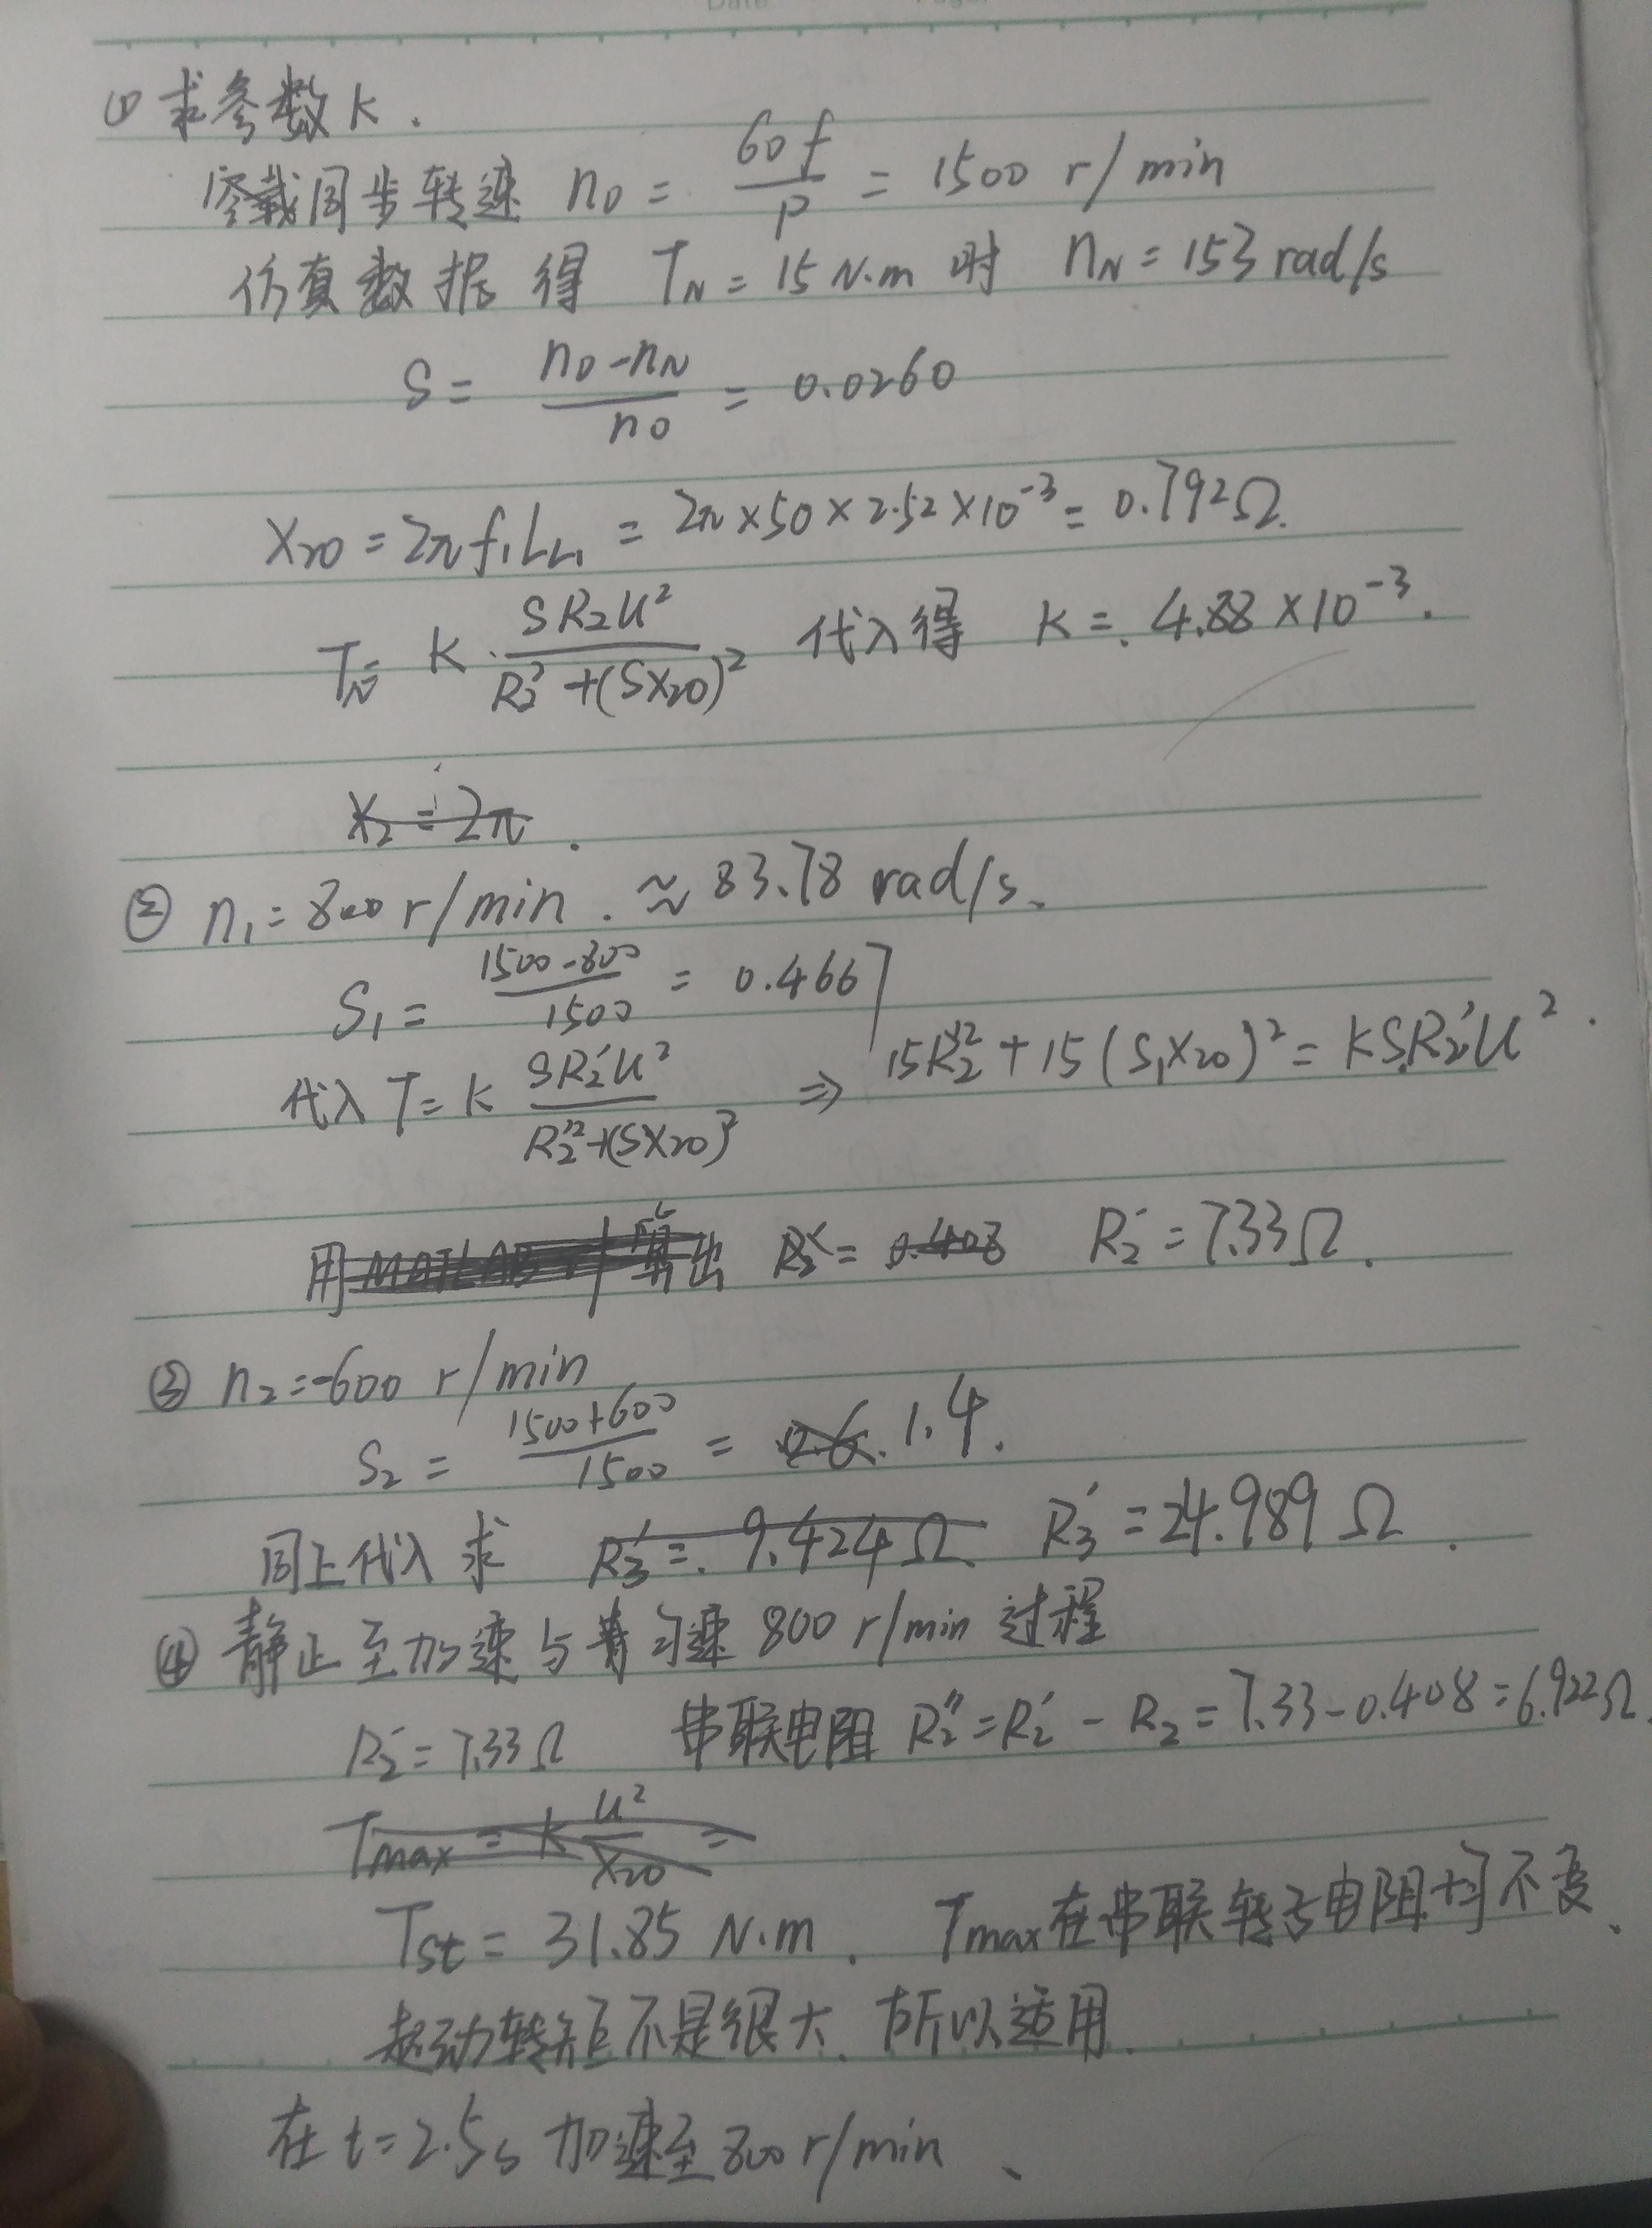 Date Page.
① 求参数K.
空载同步转速 n0 = 60f/P = 1500 r/min
仿真数据得 TN = 15 N·m 时 nN = 153 rad/s
S = (n0-nN)/n0 = 0.0260
X20 = 2πf1LL1 = 2π×50×2.52×10⁻³ = 0.792Ω.
TN = K·SR2U²/(R2²+(SX20)²) 代入得 K = 4.88×10⁻³.
X2 = 2π.
② n1 = 800 r/min. ≈ 83.78 rad/s.
S1 = (1500-800)/1500 = 0.4667
代入 T = K SR2'U²/(R2'²+(SX20)²) ⇒ 15R2'²+15(S1X20)² = KS1R2'U².
用MATLAB计算出 R2' = 0.408 R2' = 7.33Ω.
③ n2 = -600 r/min
S2 = (1500+600)/1500 = 0.6. 1.4.
同上代入求 R3' = 9.424Ω R3' = 24.989Ω.
④ 静止至加速与匀速 800 r/min 过程
R2' = 7.33Ω 串联电阻 R2'' = R2' - R2 = 7.33-0.408 = 6.922Ω.
Tmax = K U²/X20 =
Tst = 31.85 N·m. Tmax在串联转子电阻均不变、
起动转矩不是很大. 所以适用.
在t=2.5s 加速至800 r/min、